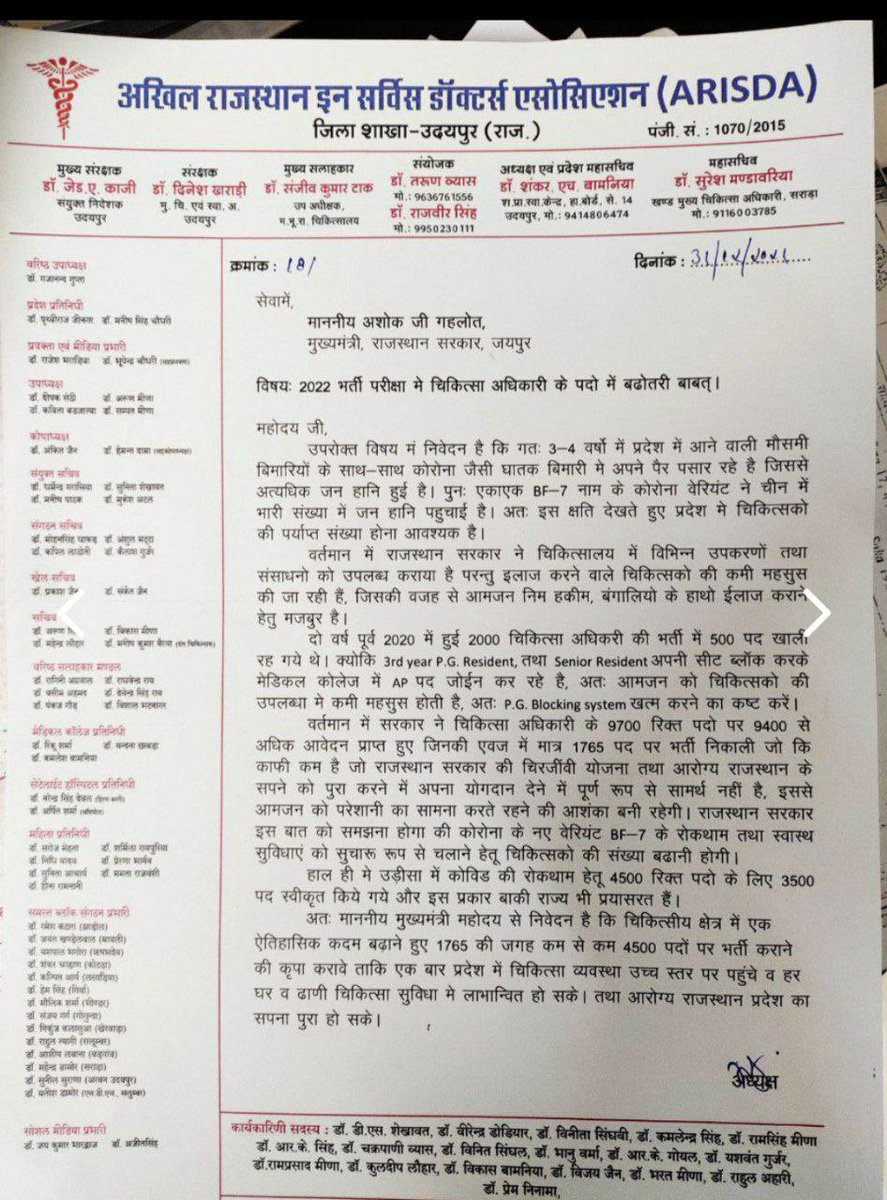 अखिल राजस्थान इन सर्विस डॉक्टर्स एसोसिएशन (ARISDA)
जिला शाखा-उदयपुर (राज.)
पंजी. सं. : 1070/2015
मुख्य संरक्षक
डॉ. जेड.ए. काजी
संयुक्त निदेशक
उदयपुर
संरक्षक
डॉ. दिनेश खराडी
मु. चि. एवं स्वा. अ.
उदयपुर
मुख्य सलाहकार
डॉ. संजीव कुमार टाक
उप अधीक्षक,
म.भू.रा. चिकित्सालय
संयोजक
डॉ. तरूण व्यास
मो.: 9636761556
डॉ. राजवीर सिंह
मो.: 9950230111
अध्यक्ष एवं प्रदेश महासचिव
डॉ. शंकर. एच. बामनिया
श.प्रा.स्वा.केन्द्र, हा.बोर्ड, से. 14
उदयपुर, मो.: 9414806474
महासचिव
डॉ. सुरेश मण्डावरिया
खण्ड मुख्य चिकित्सा अधिकारी, सराड़ा
मो.: 9116003785
वरिष्ठ उपाध्यक्ष
डॉ. गजानन्द गुप्ता
प्रदेश प्रतिनिधी
डॉ. पृथ्वीराज जीनगर डॉ. मनीष सिंह चौधरी
प्रवक्ता एवं मीडिया प्रभारी
डॉ. राजेश भराडिया डॉ. भूपेन्द्र चौधरी (सहप्रवक्ता)
उपाध्यक्ष
डॉ. दीपक सेठी डॉ. अरूण मीणा
डॉ. कविता बडजात्या डॉ. सम्पत मीणा
कोषाध्यक्ष
डॉ. अंकित जैन डॉ. हेमन्त दामा (सहकोषाध्यक्ष)
संयुक्त सचिव
डॉ. धर्मेन्द्र गरासिया डॉ. सुनिता शेखावत
डॉ. मनीष पाठक डॉ. मुकेश अटल
संगठन सचिव
डॉ. मोहनसिंह धाकड़ डॉ. अंशुल मट्ठा
डॉ. कपिल लाडोती डॉ. कैलाश गुर्जर
खेल सचिव
डॉ. प्रकाश जैन डॉ. संकेत जैन
सचिव
डॉ. अरूण सिं डॉ. विकास मीणा
डॉ. महेन्द्र लौहार डॉ. मनीष कुमार बैरवा (दंत चिकित्सक)
वरिष्ठ सलाहकार मण्डल
डॉ. रागिनी अग्रवाल डॉ. राघवेन्द्र राय
डॉ. वसीम अहमद डॉ. देवेन्द्र सिंह राव
डॉ. पंकज गौड़ डॉ. विशाल भटनागर
मेडिकल कॉलेज प्रतिनिधी
डॉ. रिंकू शर्मा डॉ. वन्दना छाबड़ा
डॉ. कमलेश बामनिया
सेटेलाईट हॉस्पिटल प्रतिनिधी
डॉ. नरेन्द्र सिंह देवल
डॉ. अर्पित शर्मा
महिला प्रतिनिधी
डॉ. सरोज मेहता डॉ. शर्मिला रायपुरिया
डॉ. निधि यादव डॉ. प्रेरणा भार्गव
डॉ. सुनिता आचार्य डॉ. ममता राजवंशी
डॉ. हीना रामनानी
समस्त ब्लॉक संगठन प्रभारी
डॉ. रमेश कटारा (झाडोल)
डॉ. जयंत खण्डेलवाल (मावली)
डॉ. यशपाल भगोरा (ऋषभदेव)
डॉ. शंकर चव्हाण (कोटड़ा)
डॉ. कल्पित आर्य (लसाड़िया)
डॉ. हेम सिंह (गिर्वा)
डॉ. मौलिक शर्मा (भीण्डर)
डॉ. संजय गर्ग (गोगुन्दा)
डॉ. निकुंज कलासुआ (खेरवाड़ा)
डॉ. राहुल त्यागी (सलूम्बर)
डॉ. आशीष लबाना (बड़गांव)
डॉ. महेन्द्र डामोर (सराड़ा)
डॉ. सुनील सुराणा (अरबन उदयपुर)
डॉ. यतीश डामोर (एस.डी.एच., सलुम्बर)
सोशल मीडिया प्रभारी
डॉ. जय कुमार भारद्वाज डॉ. अजीतसिंह
क्रमांक : 18/
दिनांक : 31/12/2022
सेवामें,
माननीय अशोक जी गहलोत,
मुख्यमंत्री, राजस्थान सरकार, जयपुर
विषयः 2022 भर्ती परीक्षा मे चिकित्सा अधिकारी के पदो में बढोतरी बाबत्।
महोदय जी,
उपरोक्त विषय मं निवेदन है कि गतः 3-4 वर्षो में प्रदेश में आने वाली मौसमी
बिमारियों के साथ-साथ कोरोना जैसी घातक बिमारी मे अपने पैर पसार रहे है जिससे
अत्यधिक जन हानि हुई है। पुनः एकाएक BF-7 नाम के कोरोना वेरियंट ने चीन में
भारी संख्या में जन हानि पहुचाई है। अतः इस क्षति देखते हुए प्रदेश मे चिकित्सको
की पर्याप्त संख्या होना आवश्यक है।
वर्तमान में राजस्थान सरकार ने चिकित्सालय में विभिन्न उपकरणों तथा
संसाधनो को उपलब्ध कराया है परन्तु इलाज करने वाले चिकित्सको की कमी महसुस
की जा रही हैं, जिसकी वजह से आमजन निम हकीम, बंगालियो के हाथो ईलाज कराने
हेतु मजबुर है।
दो वर्ष पूर्व 2020 में हुई 2000 चिकित्सा अधिकरी की भर्ती में 500 पद खाली
रह गये थे। क्योकि 3rd year P.G. Resident, तथा Senior Resident अपनी सीट ब्लॉक करके
मेडिकल कोलेज में AP पद जोईन कर रहे है, अतः आमजन को चिकित्सको की
उपलब्धा मे कमी महसुस होती है, अतः P.G. Blocking system खत्म करने का कष्ट करें।
वर्तमान में सरकार ने चिकित्सा अधिकारी के 9700 रिक्त पदो पर 9400 से
अधिक आवेदन प्राप्त हुए जिनकी एवज में मात्र 1765 पद पर भर्ती निकाली जो कि
काफी कम है जो राजस्थान सरकार की चिरजींवी योजना तथा आरोग्य राजस्थान के
सपने को पुरा करने में अपना योगदान देने में पूर्ण रूप से सामर्थ नहीं है, इससे
आमजन को परेशानी का सामना करते रहने की आशंका बनी रहेगी। राजस्थान सरकार
इस बात को समझना होगा की कोरोना के नए वेरियंट BF-7 के रोकथाम तथा स्वास्थ
सुविधाएं को सुचारू रूप से चलाने हेतु चिकित्सको की संख्या बढानी होगी।
हाल ही मे उड़ीसा में कोविड की रोकथाम हेतु 4500 रिक्त पदो के लिए 3500
पद स्वीकृत किये गये और इस प्रकार बाकी राज्य भी प्रयासरत हैं।
अतः माननीय मुख्यमंत्री महोदय से निवेदन है कि चिकित्सीय क्षेत्र में एक
ऐतिहासिक कदम बढ़ाने हुए 1765 की जगह कम से कम 4500 पदों पर भर्ती कराने
की कृपा करावे ताकि एक बार प्रदेश में चिकित्सा व्यवस्था उच्च स्तर पर पहुंचे व हर
घर व ढाणी चिकित्सा सुविधा मे लाभान्वित हो सके। तथा आरोग्य राजस्थान प्रदेश का
सपना पुरा हो सके।
अध्यक्ष
कार्यकारिणी सदस्य : डॉ. डी.एस. शेखावत, डॉ. वीरेन्द्र डोडियार, डॉ. विनीता सिंघवी, डॉ. कमलेन्द्र सिंह, डॉ. रामसिंह मीणा
डॉ. आर.के. सिंह, डॉ. चक्रपाणी व्यास, डॉ. विनित सिंघल, डॉ. भानु वर्मा, डॉ. आर.के. गोयल, डॉ. यशवंत गुर्जर,
डॉ.रामप्रसाद मीणा, डॉ. कुलदीप लौहार, डॉ. विकास बामनिया, डॉ. विजय जैन, डॉ. भरत मीणा, डॉ. राहुल अहारी,
डॉ. प्रेम निनामा,